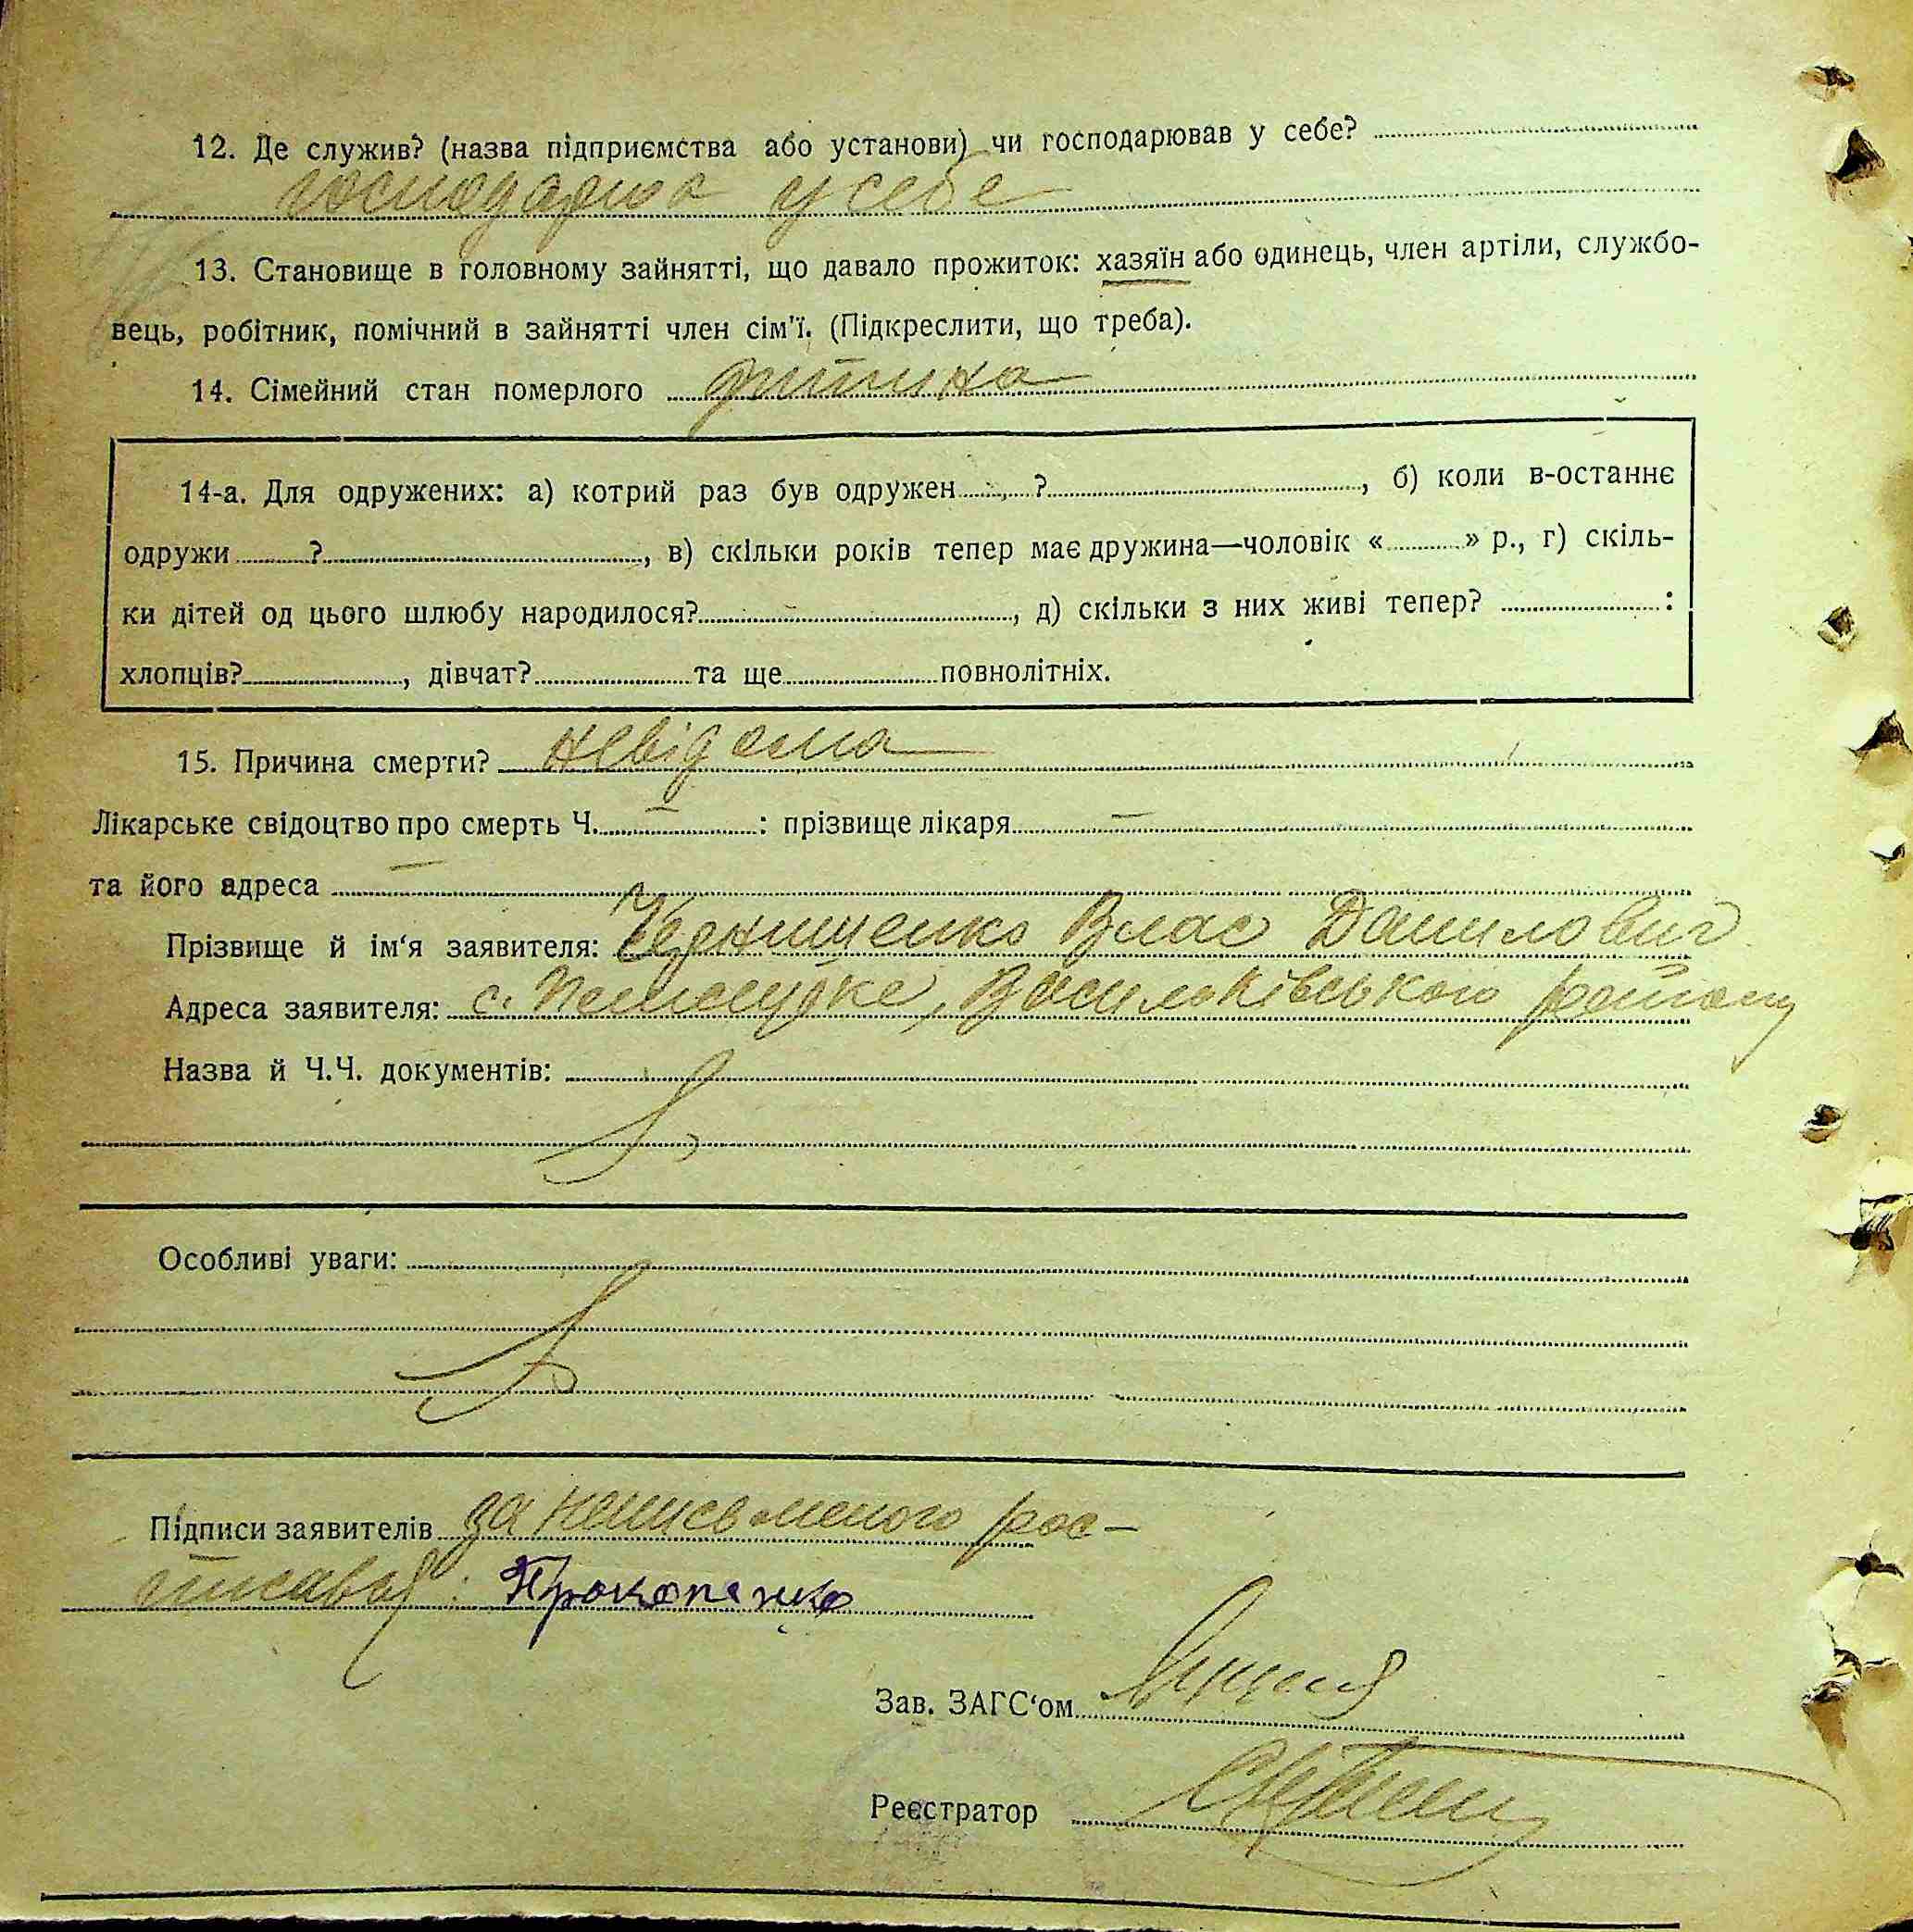 12. Де служив? (назва підприємства або установи) чи господарював у себе?
господарка у себе
13. Становище в головному зайнятті, що давало прожиток: хазяїн або одинець, член артіли, службо-
вець, робітник, помічний в зайнятті член сім'ї. (Підкреслити, що треба).
14. Сімейний стан померлого дитина
14-а. Для одружених: а) котрий раз був одружен ?, б) коли в-останнє
одружи ?, в) скільки років тепер має дружина—чоловік « » р., г) скіль-
ки дітей од цього шлюбу народилося?, д) скільки з них живі тепер? :
хлопців?, дівчат? та ще повнолітніх.
15. Причина смерти? невідома
Лікарське свідоцтво про смерть Ч. — : прізвище лікаря —
та його адреса —
Прізвище й ім'я заявителя: Чернишенко Влас Данилович
Адреса заявителя: с. Васильківського району
Назва й Ч.Ч. документів:
Особливі уваги:
Підписи заявителів за неписьменого рос-
писавсь: Прокопенко
Зав. ЗАГС'ом
Реєстратор